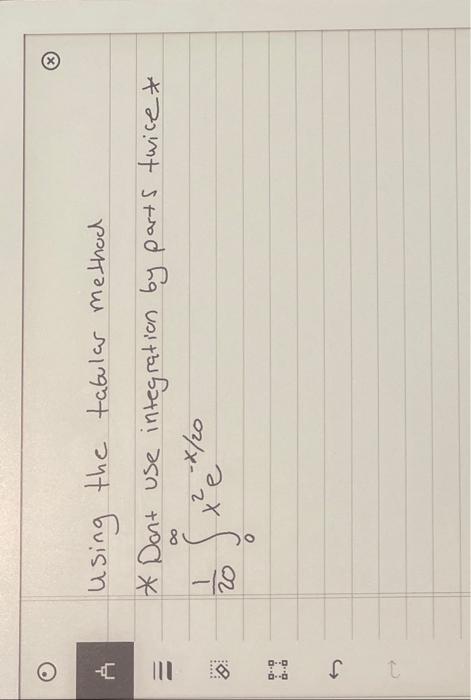 Using the tabular method
* Dont use integration by parts twice *
1/20 ∫₀^∞ x² e^(-x/20)